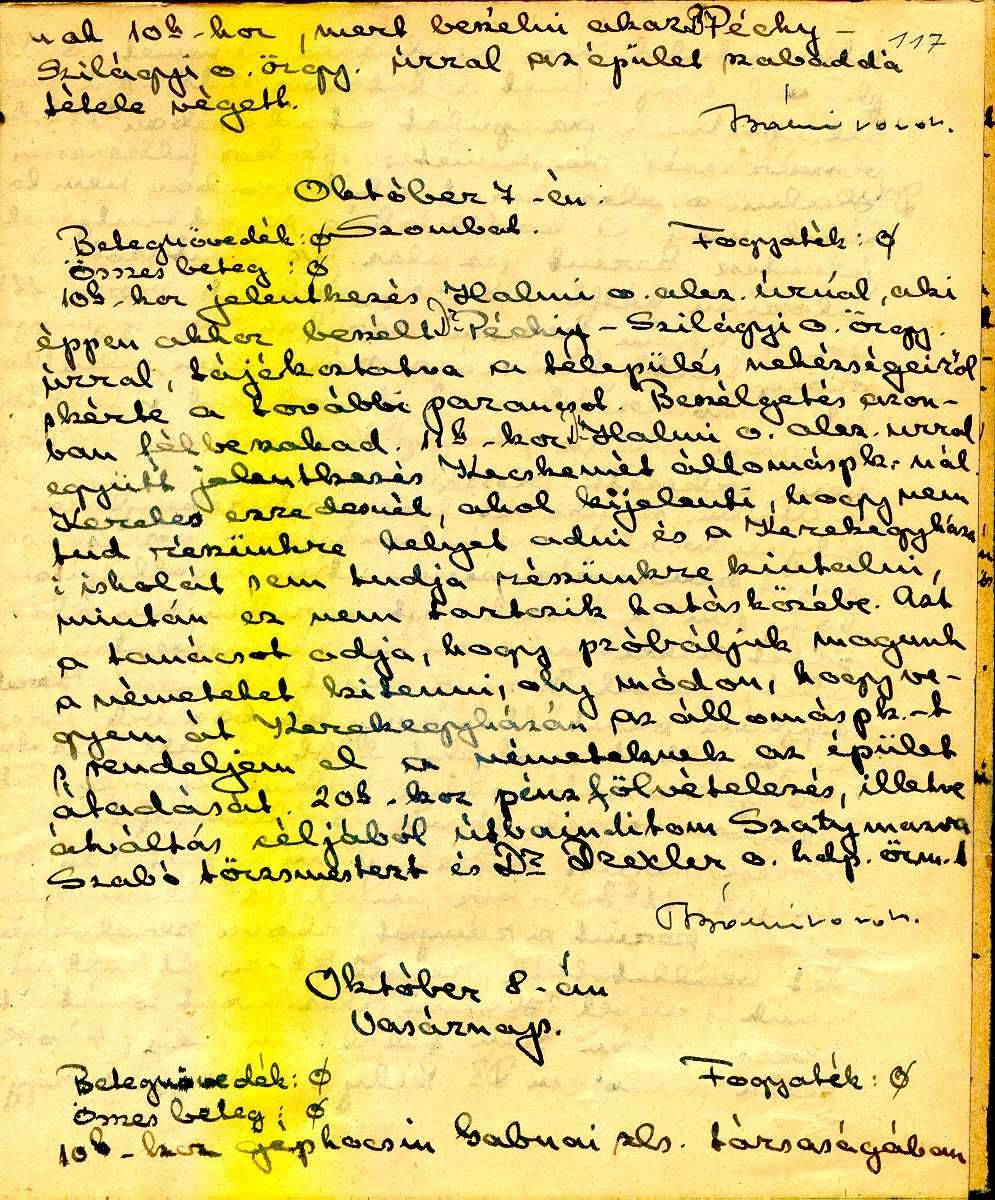 nak 10h-kor, mert beszélni akar Dr Péchy -
117
Szilágyi o. őrgy. úrral az épület szabaddá
tétele végett.
Október 7-én.
Szombat.
Betegnövedék: Ø
Fogyaték: Ø
Összes beteg: Ø
10h-kor jelentkezés Halmi o. alez. úrnál, aki
éppen akkor beszélt Dr Péchy-Szilágyi o. őrgy.
úrral, tájékoztatva a település nehézségeiről
s kérte a további parancsot. Beszélgetés azon-
ban félbeszakad. 11h-kor Dr Halmi o. alez. úrral
együtt jelentkezés Kecskemét állomáspk.-nál
Kerekes ezredesnél, ahol kijelenti, hogy nem
tud részünkre helyet adni és a Kerekegyháza
i iskolát sem tudja részünkre kiutalni,
mintán ez nem tartozik hatáskörébe. Azt
a tanácsot adja, hogy próbáljuk magunk
a németeket kitenni, oly módon, hogy ve-
gyem át Kerekegyházán az állomáspk.-t
s rendeljem el a németeknek az épület
átadását. 20h-kor pénzfölvételezés, illetve
átváltás céljából útbaindítom Szatymazra
Szabó törzsmestert és Dr Drexler o. hdp. őrm.-t
Október 8-án
Vasárnap.
Betegnövedék: Ø
Fogyaték: Ø
Összes beteg: Ø
10h-kor gépkocsin zls. társaságában